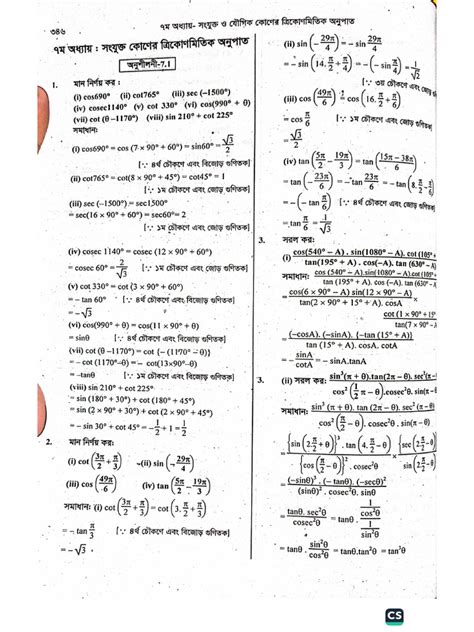 ৩৪৬
৭ম অধ্যায়- সংযুক্ত ও যৌগিক কোণের ত্রিকোণমিতিক অনুপাত
৭ম অধ্যায় : সংযুক্ত কোণের ত্রিকোণমিতিক অনুপাত
অনুশীলনী-7.1
1. মান নির্ণয় কর :
(i) cos690° (ii) cot765° (iii) sec (−1500°)
(iv) cosec1140° (v) cot 330° (vi) cos(990° + θ)
(vii) cot (θ −1170°) (viii) sin 210° + cot 225°
সমাধান:
(i) cos690° = cos (7× 90° + 60°) = sin60° = √3/2
[∵ ৪র্থ চৌকণে এবং বিজোড় গুণিতক]
(ii) cot765° = cot(8 × 90° + 45°) = cot45° = 1
[∵ ১ম চৌকণে এবং জোড় গুণিতক]
(iii) sec (−1500°) = sec1500°
= sec(16 × 90° + 60°) = sec60° = 2
[∵ ১ম চৌকণে এবং জোড় গুণিতক]
(iv) cosec 1140° = cosec (12 × 90° + 60°)
= cosec 60° = 2/√3 [∵ ১ম চৌকণে এবং জোড় গুণিতক]
(v) cot 330° = cot (3 × 90° + 60°)
= − tan 60° [∵ ৪র্থ চৌকণে এবং বিজোড় গুণিতক]
= −√3
(vi) cos(990° + θ) = cos(11 × 90° + θ)
= sinθ [∵ ৪র্থ চৌকণে এবং বিজোড় গুণিতক]
(vii) cot (θ −1170°) = cot {− (1170° − θ)}
= − cot (1170°−θ) = − cot(13×90°−θ)
= −tanθ [∵ ১ম চৌকণে এবং বিজোড় গুণিতক]
(viii) sin 210° + cot 225°
= sin (180° + 30°) + cot (180° + 45°)
= sin (2 × 90° + 30°) + cot (2 × 90° + 45°)
= − sin 30° + cot 45° = −1/2 + 1 = 1/2
2. মান নির্ণয় কর:
(i) cot (3π/2 + π/3) (ii) sin (−29π/4)
(iii) cos (49π/6) (iv) tan (5π/2 − 19π/3)
সমাধান: (i) cot (3π/2 + π/3) = cot (3.π/2 + π/3)
= − tan π/3 [∵ ৪র্থ চৌকণে এবং বিজোড় গুণিতক]
= −√3
(ii) sin (−29π/4) = − sin (29π/4)
= − sin (14.π/2 + π/4) = −(−1/√2)
[∵ ৩য় চৌকণে এবং জোড়
(iii) cos (49π/6) = cos (16.π/2 + π/6)
= cos π/6 [∵ ১ম চৌকণে এবং জোড় গুণিতক]
= √3/2
(iv) tan (5π/2 − 19π/3) = tan (15π−38π/6)
= tan (−23π/6) = − tan 23π/6 = −tan (8.π/2 − π/6)
= −(−tan π/6) [∵ ৪র্থ চৌকণে এবং জোড় গুণিতক]
= tan π/6 = 1/√3
3. সরল কর:
(i) cos(540° − A) . sin(1080° − A).cot (105°+ / tan(195° + A). cos(−A). tan (630°− A)
সমাধান: cos (540° − A).sin(1080° − A).cot(105°+ / tan (195° + A). cos (−A). tan (630°− A)
= cos(6 × 90° − A) sin(12 × 90° − A) / tan(2 × 90° + 15° + A). cosA
cot (1 × 90° + 15°
= (−cosA). (−sinA). {−tan (15° + A)} / tan(15° + A). cosA. cotA
= − sinA/cotA = − sinA.tanA
3. (ii) সরল কর: sin³(π + θ).tan(2π − θ). sec²(π− / cos²(1/2 π − θ).cosec²θ. sin(
সমাধান: sin³ (π + θ). tan (2π − θ). sec² (π− / cos² (π/2 − θ). cosec²θ. sin (
= {sin (2.π/2 + θ)}³ . tan (4.π/2 − θ) . {sec (2π/2 − θ)}² / {cos (π/2 − θ)}² . cosec²θ . sin (2.π/2 − θ)
= (−sinθ)³ . (− tanθ). (−secθ)² / (sinθ)² . cosec²θ. sinθ
= tanθ. sec²θ / cosec²θ = tanθ . 1/cos²θ / 1/sin²θ
= tanθ . sin²θ/cos²θ = tanθ.tan²θ = tan³θ
CS